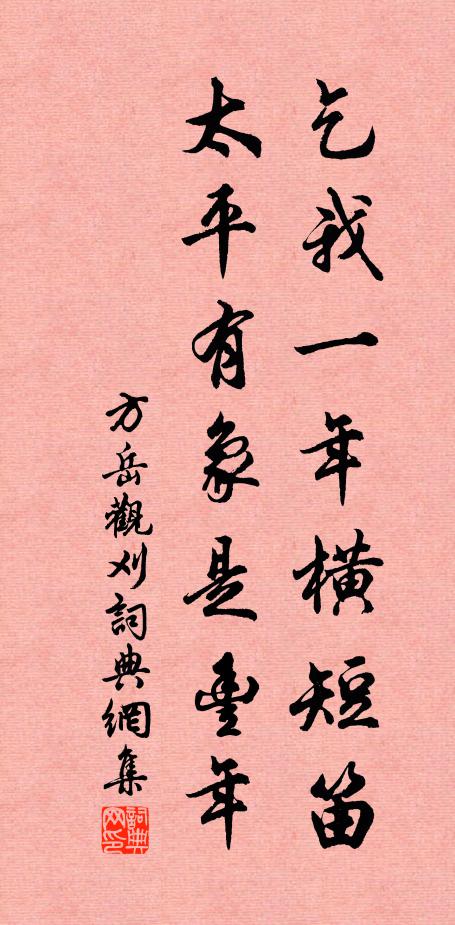 乞我一年橫短笛
太平有象是豐年
方岳觀刈詞典網集
詞典网印